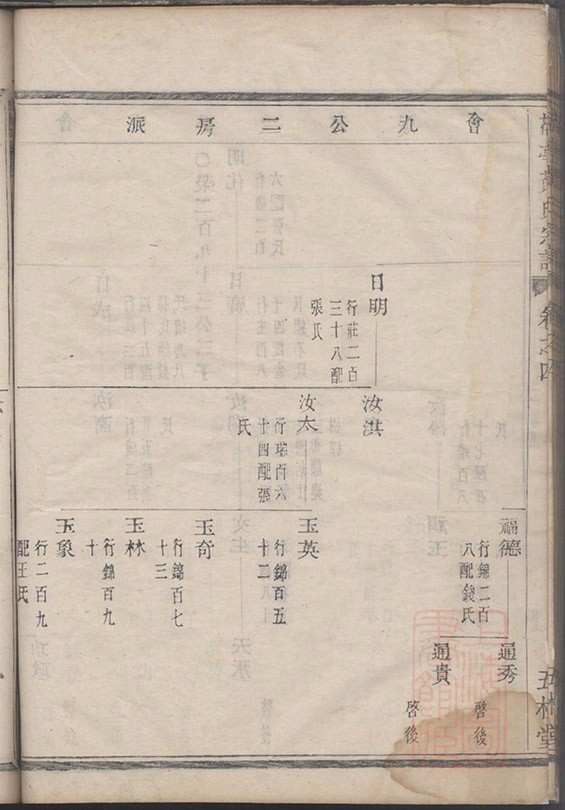 黃氏宗譜 卷之四
五桂堂
會九公二房派
福德
行錦二百
八配錢氏
通秀
啓後
通貴
啓後
日明
行莊二百
三十八配
張氏
汝淇
汝太
行瑞百六
十四配張
氏
玉英
行錦百五
十二
玉奇
行錦百七
十三
玉林
行錦百九
十
玉象
行二百九
配王氏